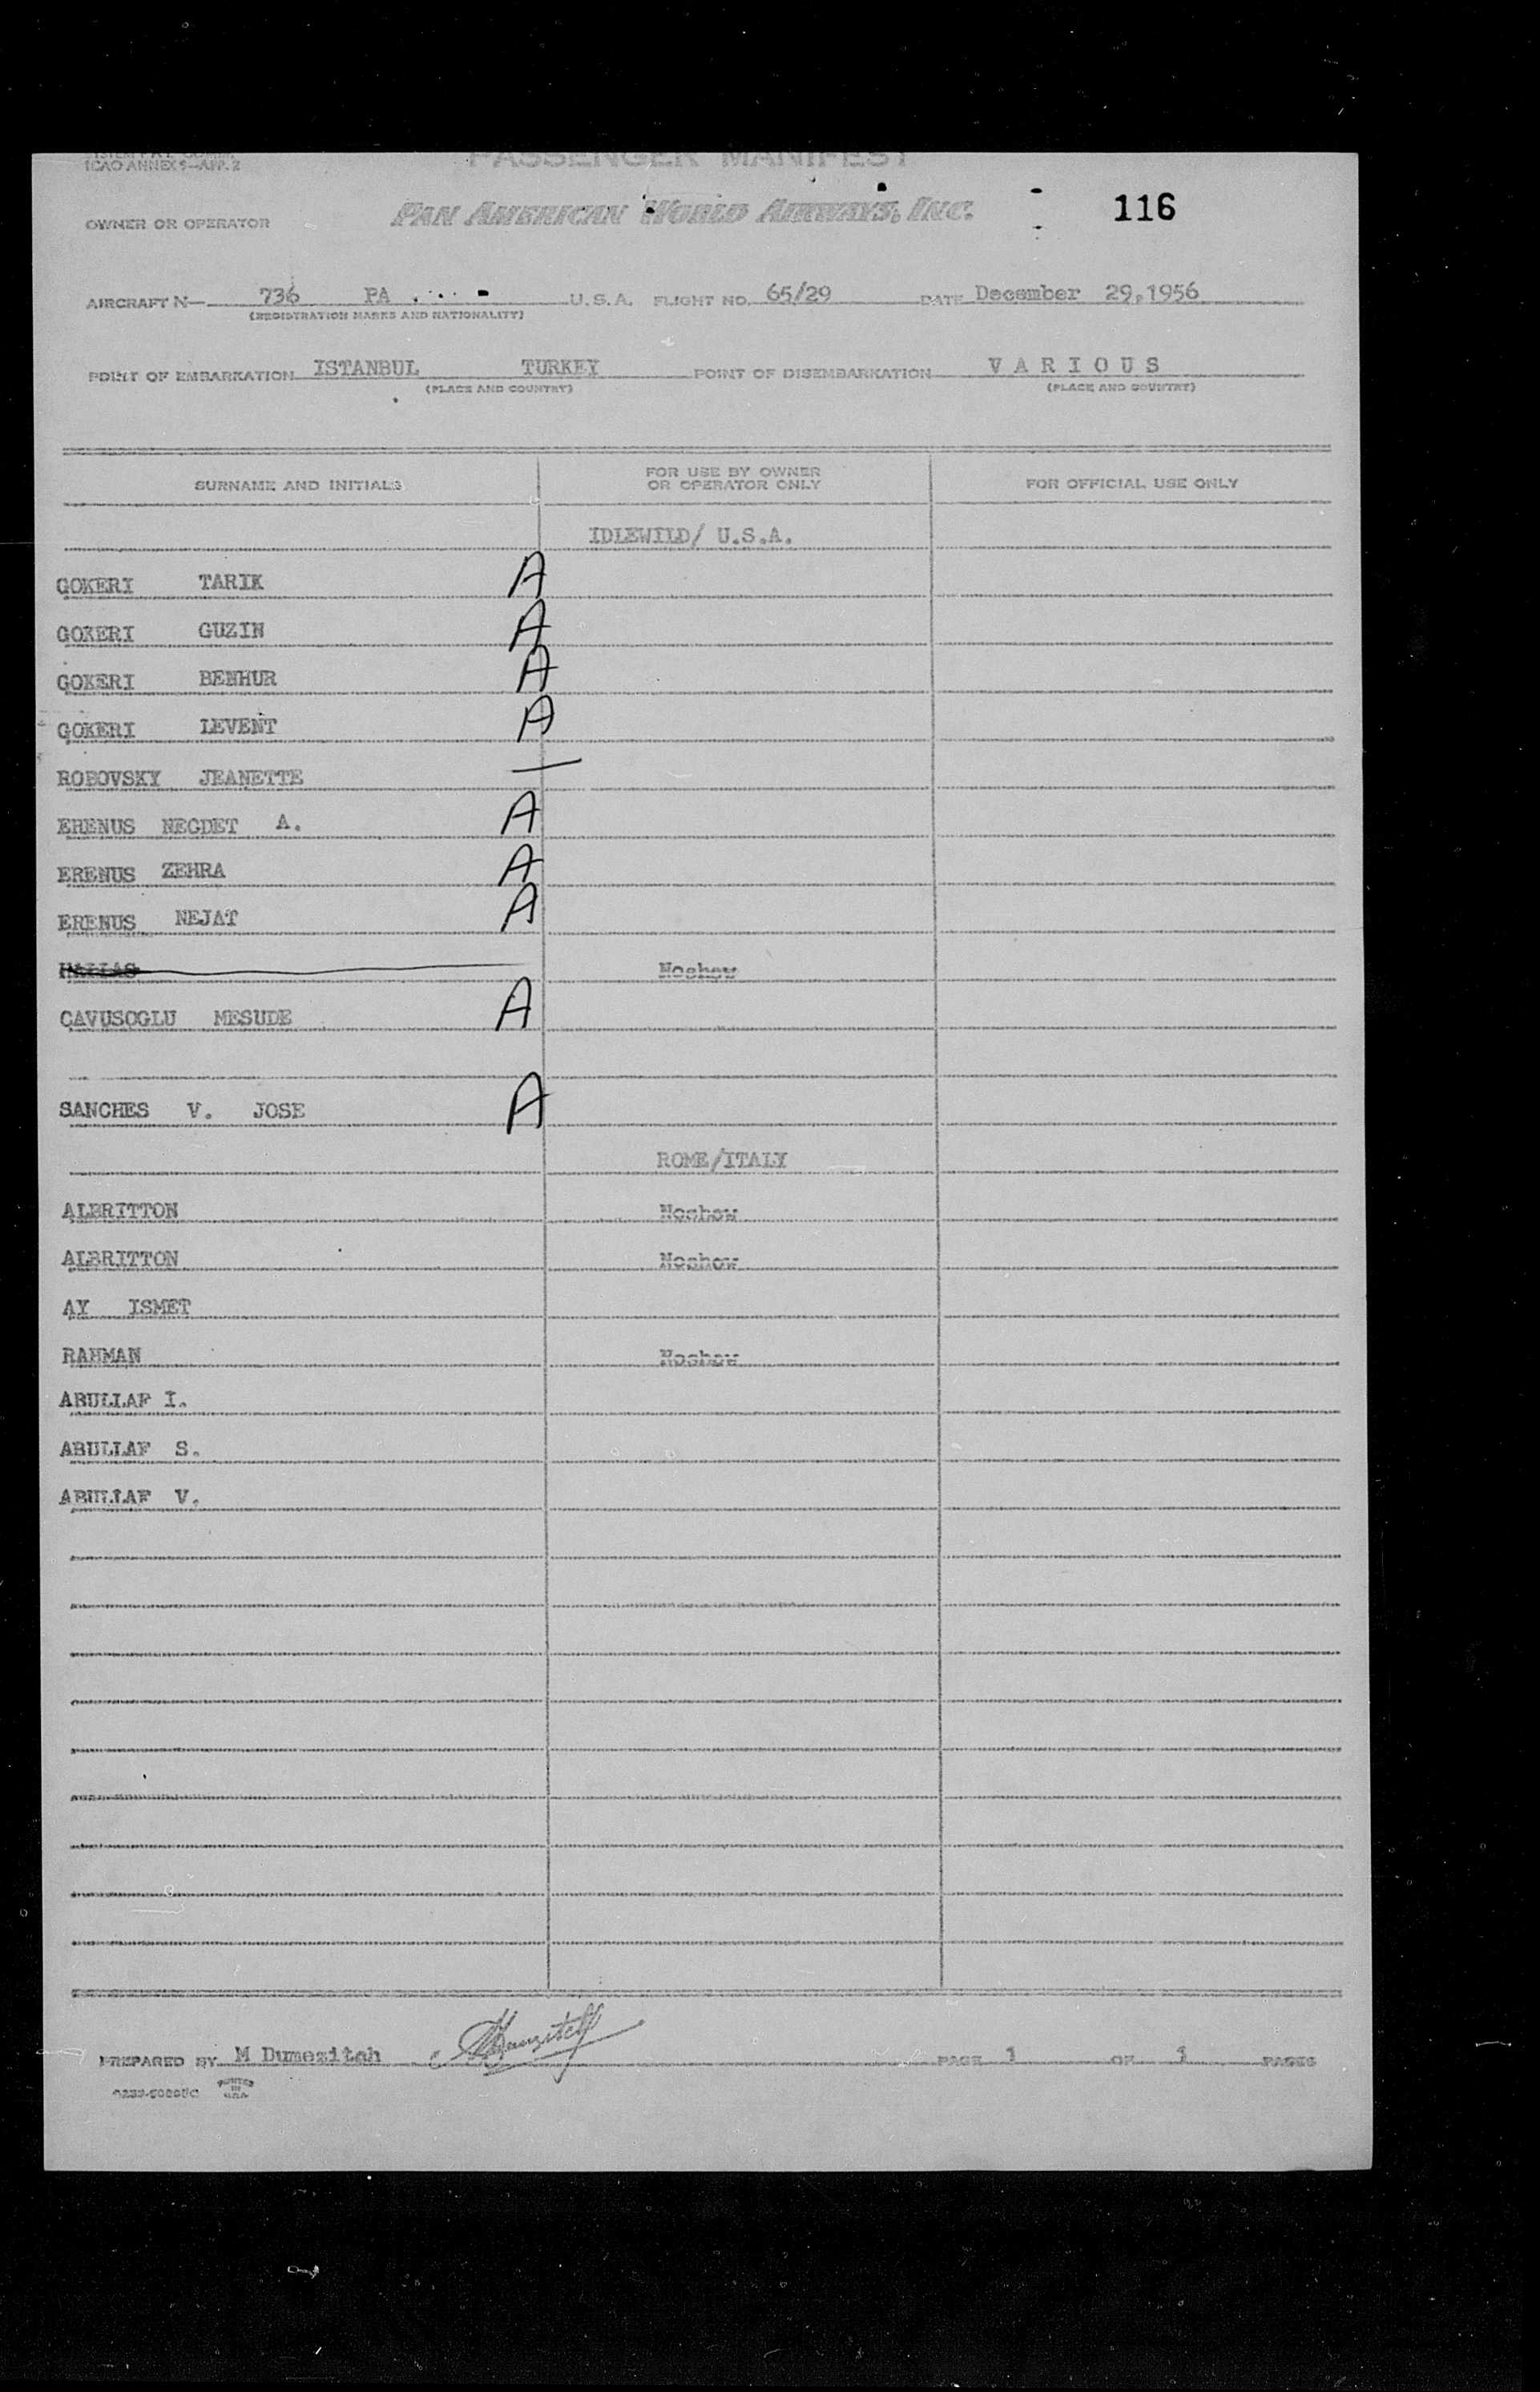 ICAO ANNEX 9—APP. 2
PASSENGER MANIFEST
OWNER OR OPERATOR PAN AMERICAN WORLD AIRWAYS, INC. 116
AIRCRAFT N— 736 PA U.S.A. FLIGHT NO. 65/29 DATE December 29,1956
(REGISTRATION MARKS AND NATIONALITY)
POINT OF EMBARKATION ISTANBUL TURKEY POINT OF DISEMBARKATION VARIOUS
(PLACE AND COUNTRY) (PLACE AND COUNTRY)
SURNAME AND INITIALS FOR USE BY OWNER OR OPERATOR ONLY FOR OFFICIAL USE ONLY
IDLEWILD/ U.S.A.
GOKERI TARIK A
GOKERI GUZIN A
GOKERI BENHUR A
GOKERI LEVENT A
ROBOVSKY JEANETTE —
ERENUS NECDET A. A
ERENUS ZEHRA A
ERENUS NEJAT A
Noshow
CAVUSOGLU MESUDE A
SANCHES V. JOSE A
ROME/ITALY
ALBRITTON Noshow
ALBRITTON Noshow
AY ISMET
RAHMAN Noshow
ABULLAF I.
ABULLAF S.
ABULLAF V.
PREPARED BY M Dumezitch PAGE 1 OF 1 PAGES
PRINTED IN U.S.A.